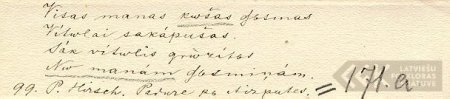 Visas manas košas dasmas
Vītwlai sakāpušas.
Sāk vītwlis qōrītas
Nw manām dasmiņām.
99. P. Hirsch. Padure pa Aizputes. = 171.a
LATVIEŠU
FOLKLORAS
KRĀTUVE